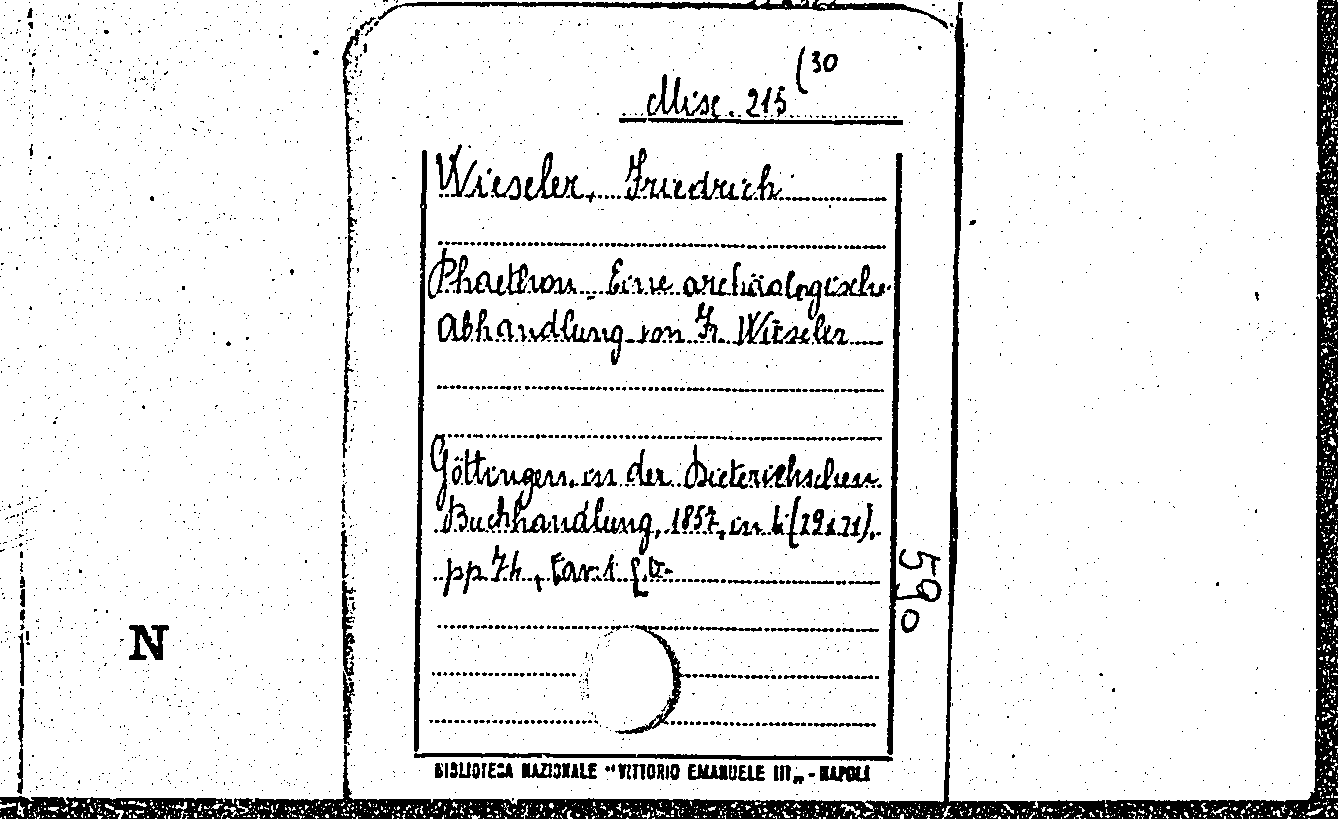 Misc. 215 (30
Wieseler, Friedrich
Phaethon. Eine archäologische
Abhandlung von Fr. Wieseler
Göttingen, in der Dieterichschen
Buchhandlung, 1857, in 4 (29x21).
pp. 74, tav. 1 f.
590
N
BIBLIOTECA NAZIONALE "VITTORIO EMANUELE III„ - NAPOLI